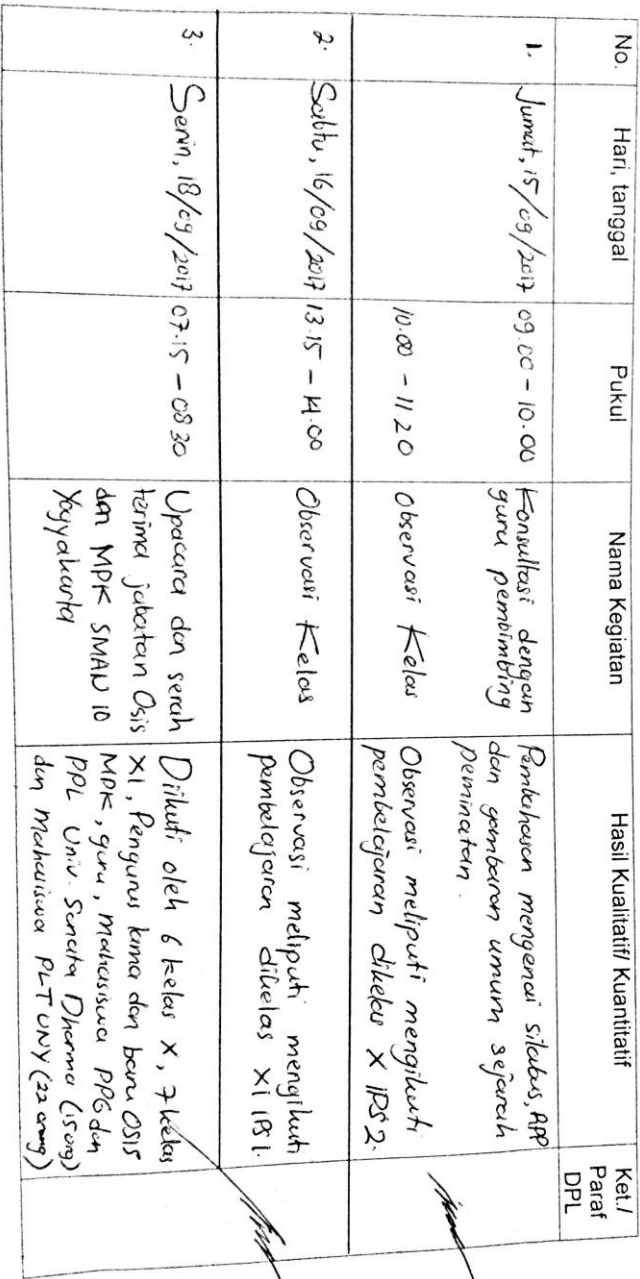 No.
Hari, tanggal
Pukul
Nama Kegiatan
Hasil Kualitatif/ Kuantitatif
Ket./
Paraf
DPL
1.
Jumat, 15/09/2017
09.00 - 10.00
Konsultasi dengan
guru pembimbing
Pembahasan mengenai silabus, RPP
dan gambaran umum sejarah
peminatan.
10.00 - 11.20
Observasi Kelas
Observasi meliputi mengikuti
pembelajaran dikelas X IPS 2.
2.
Sabtu, 16/09/2017
13.15 - 14.00
Observasi Kelas
Observasi meliputi mengikuti
pembelajaran dikelas XI IPS 1.
3.
Senin, 18/09/2017
07.15 - 08.30
Upacara dan serah
terima jabatan Osis
dan MPK SMAN 10
Yogyakarta
Diikuti oleh 6 kelas X, 7 kelas
XI, Pengurus lama dan baru OSIS
MPK, guru, mahasiswa PPG dan
PPL Univ. Sanata Dharma (15 org)
dan mahasiswa PLT UNY (22 orang)